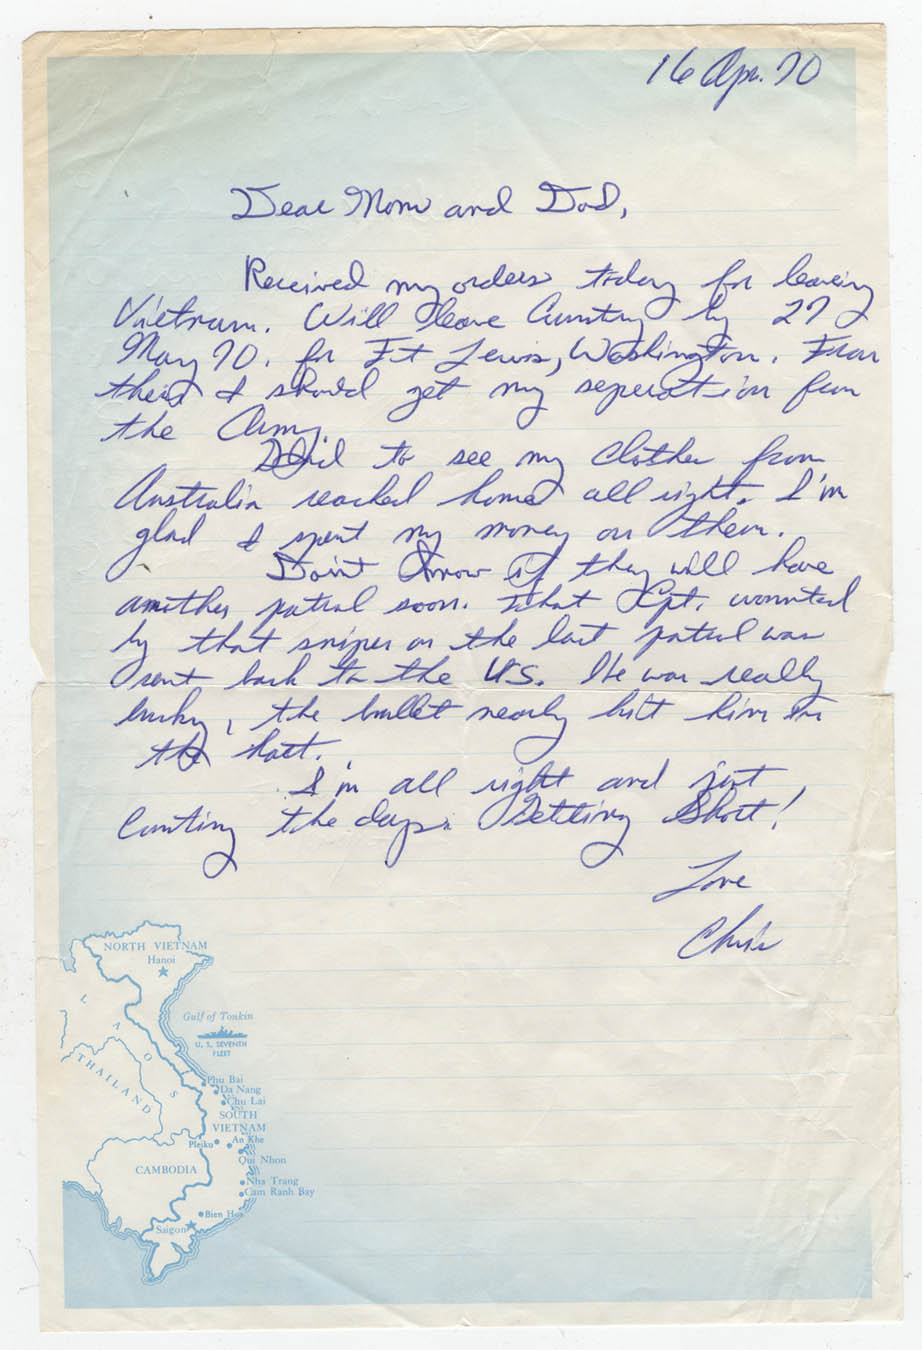 16 Apr. 70
Dear Mom and Dad,
Received my orders today for leaving
Vietnam. Will leave Country by 27
May 70. for Ft Lewis, Washington. From
their I should get my seperation from
the Army.
Glad to see my clothes from
Australia reached home all right. I'm
glad I spent my money on them.
Don't know if they will have
another patrol soon. That Cpt. wounted
by that sniper on the last patrol was
sent back to the US. He was really
lucky, the bullet nearly hit him in
the
I'm all right and just
Counting the days. Getting Short!
Love
Chris
NORTH VIETNAM
Hanoi
LAOS
Gulf of Tonkin
U. S. SEVENTH
FLEET
THAILAND
Phu Bai
Da Nang
Chu Lai
SOUTH
VIETNAM
Pleiku
An Khe
Qui Nhon
CAMBODIA
Nha Trang
Cam Ranh Bay
Bien Hoa
Saigon